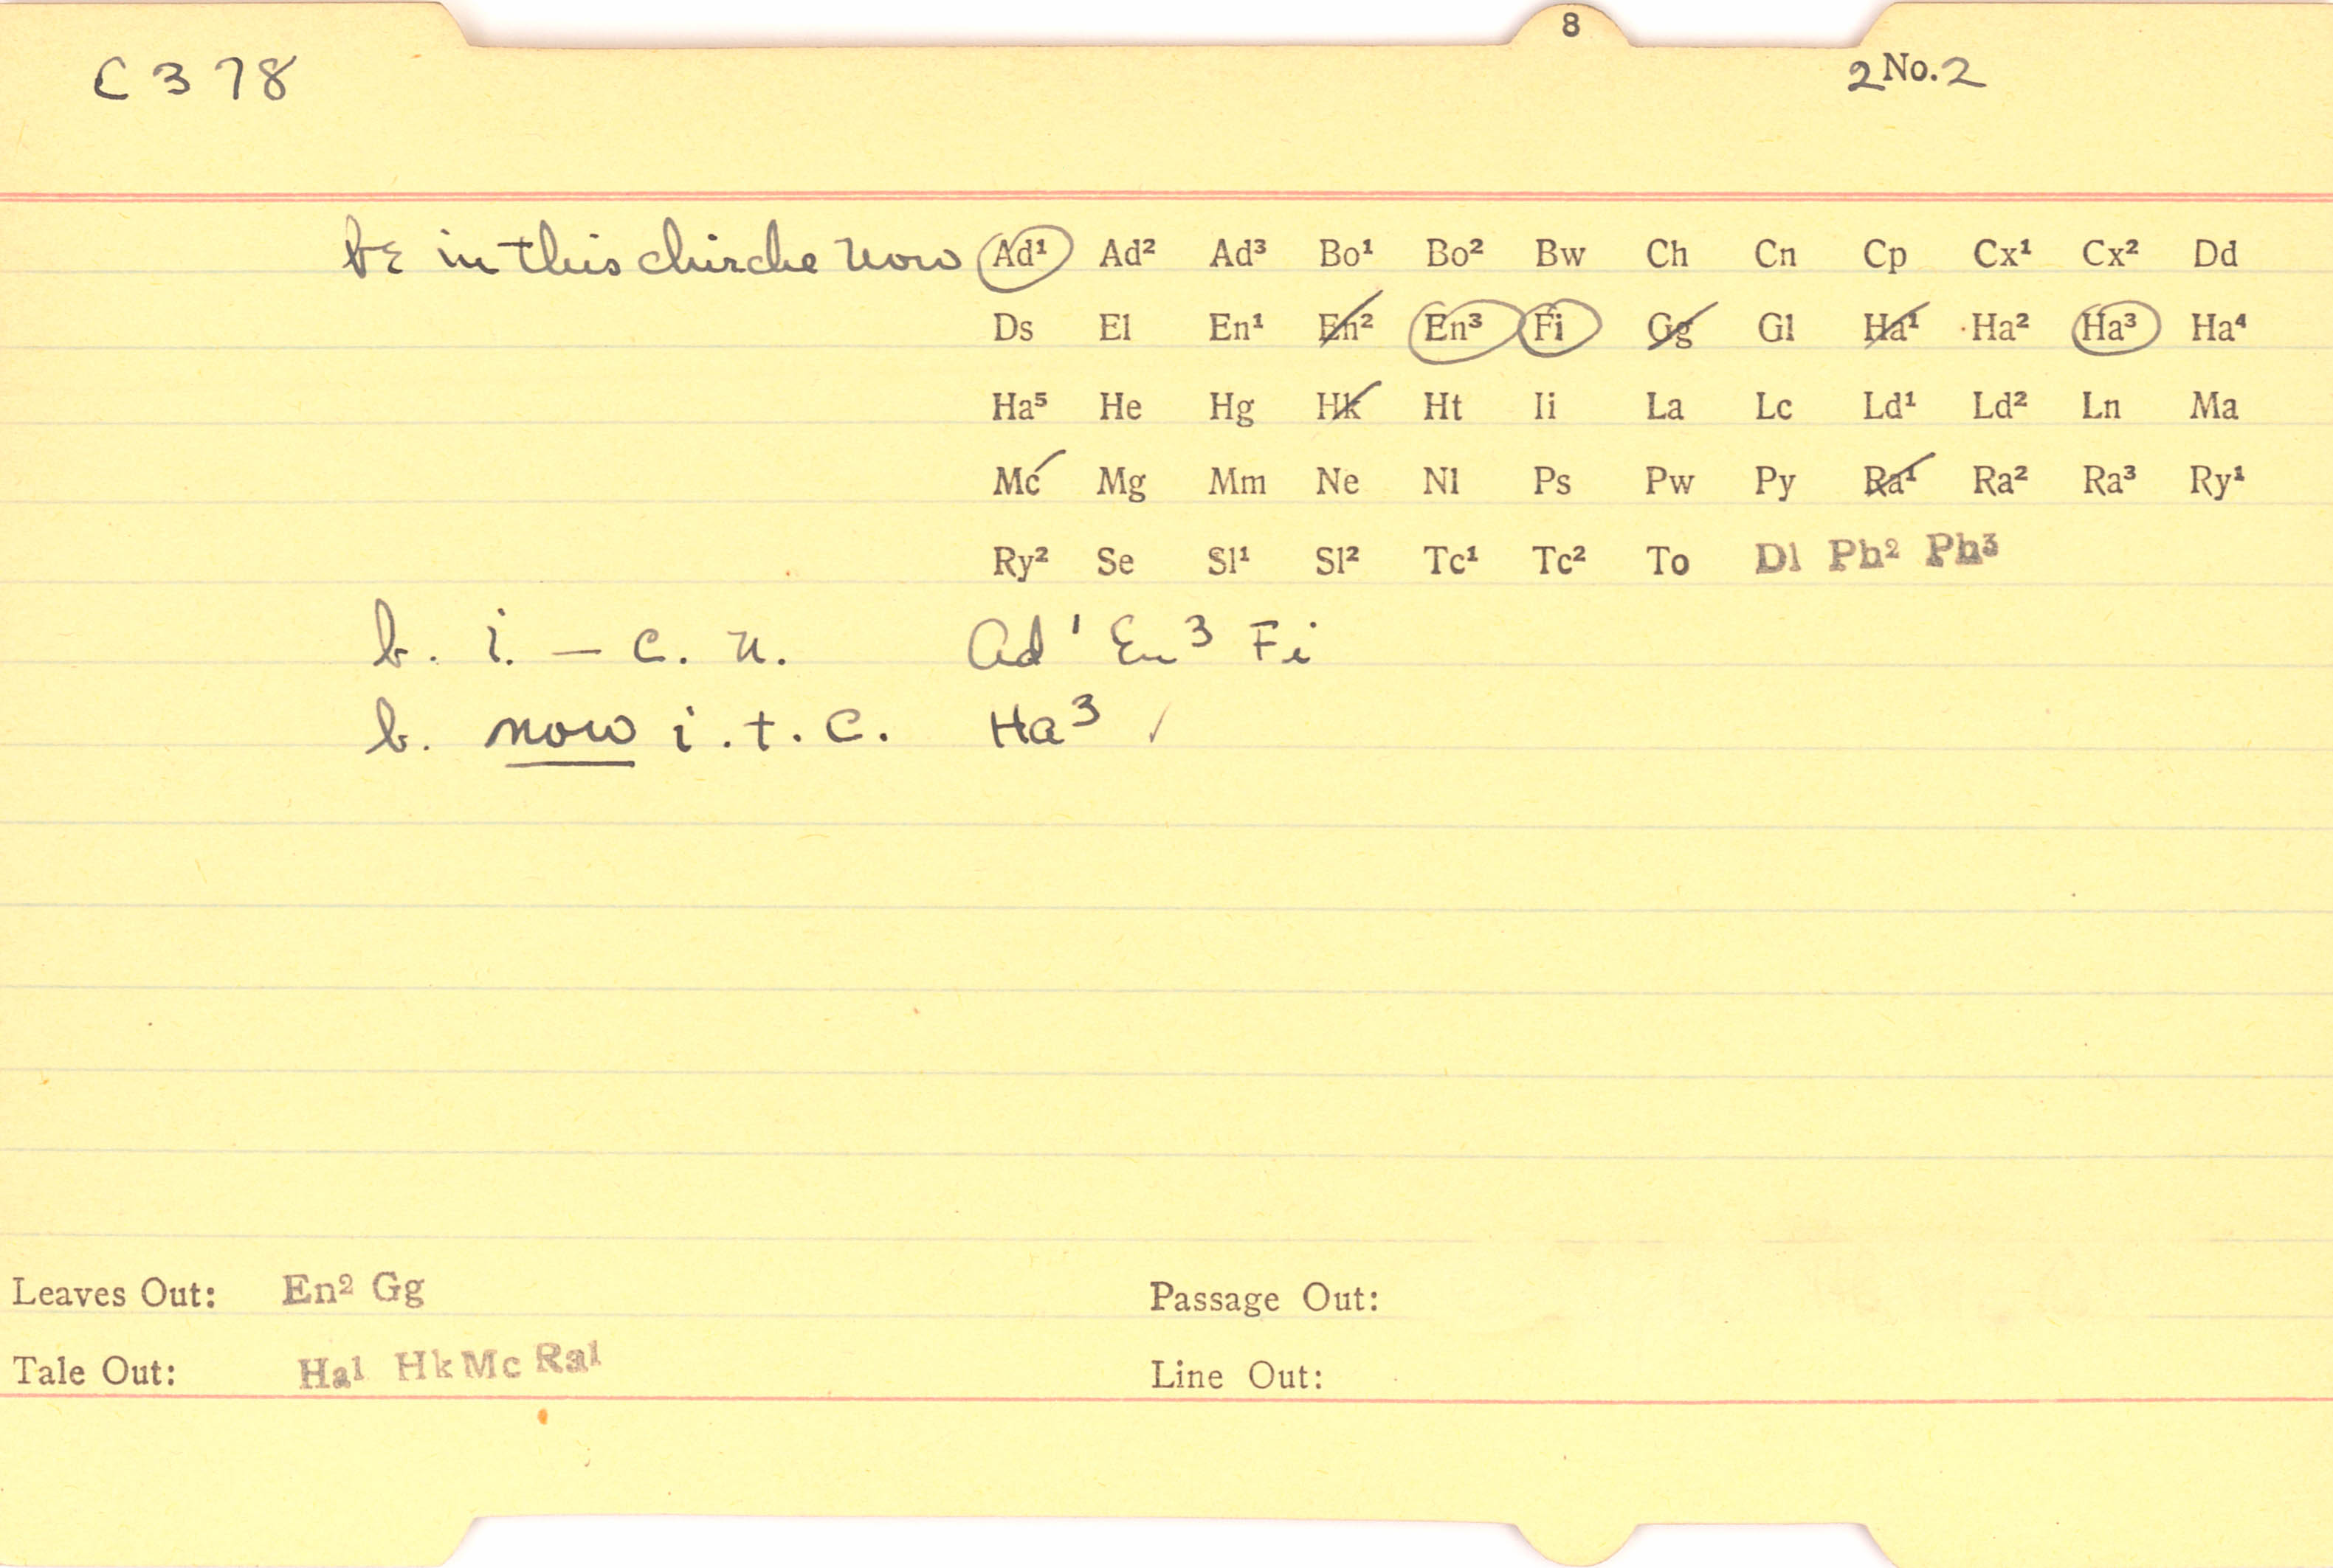 8
C 3 78 2 No. 2
be in this chirche now Ad¹ Ad² Ad³ Bo¹ Bo² Bw Ch Cn Cp Cx¹ Cx² Dd
Ds El En¹ En² En³ Fi Gg Gl Ha¹ Ha² Ha³ Ha⁴
Ha⁵ He Hg Hk Ht Ii La Lc Ld¹ Ld² Ln Ma
Mc Mg Mm Ne Nl Ps Pw Py Ra¹ Ra² Ra³ Ry¹
Ry² Se Sl¹ Sl² Tc¹ Tc² To Dl Ph² Ph³
b. i. — c. n. Ad¹ En³ Fi
b. now i. t. c. Ha³ /
Leaves Out: En² Gg Passage Out:
Tale Out: Ha¹ Hk Mc Ra¹ Line Out: